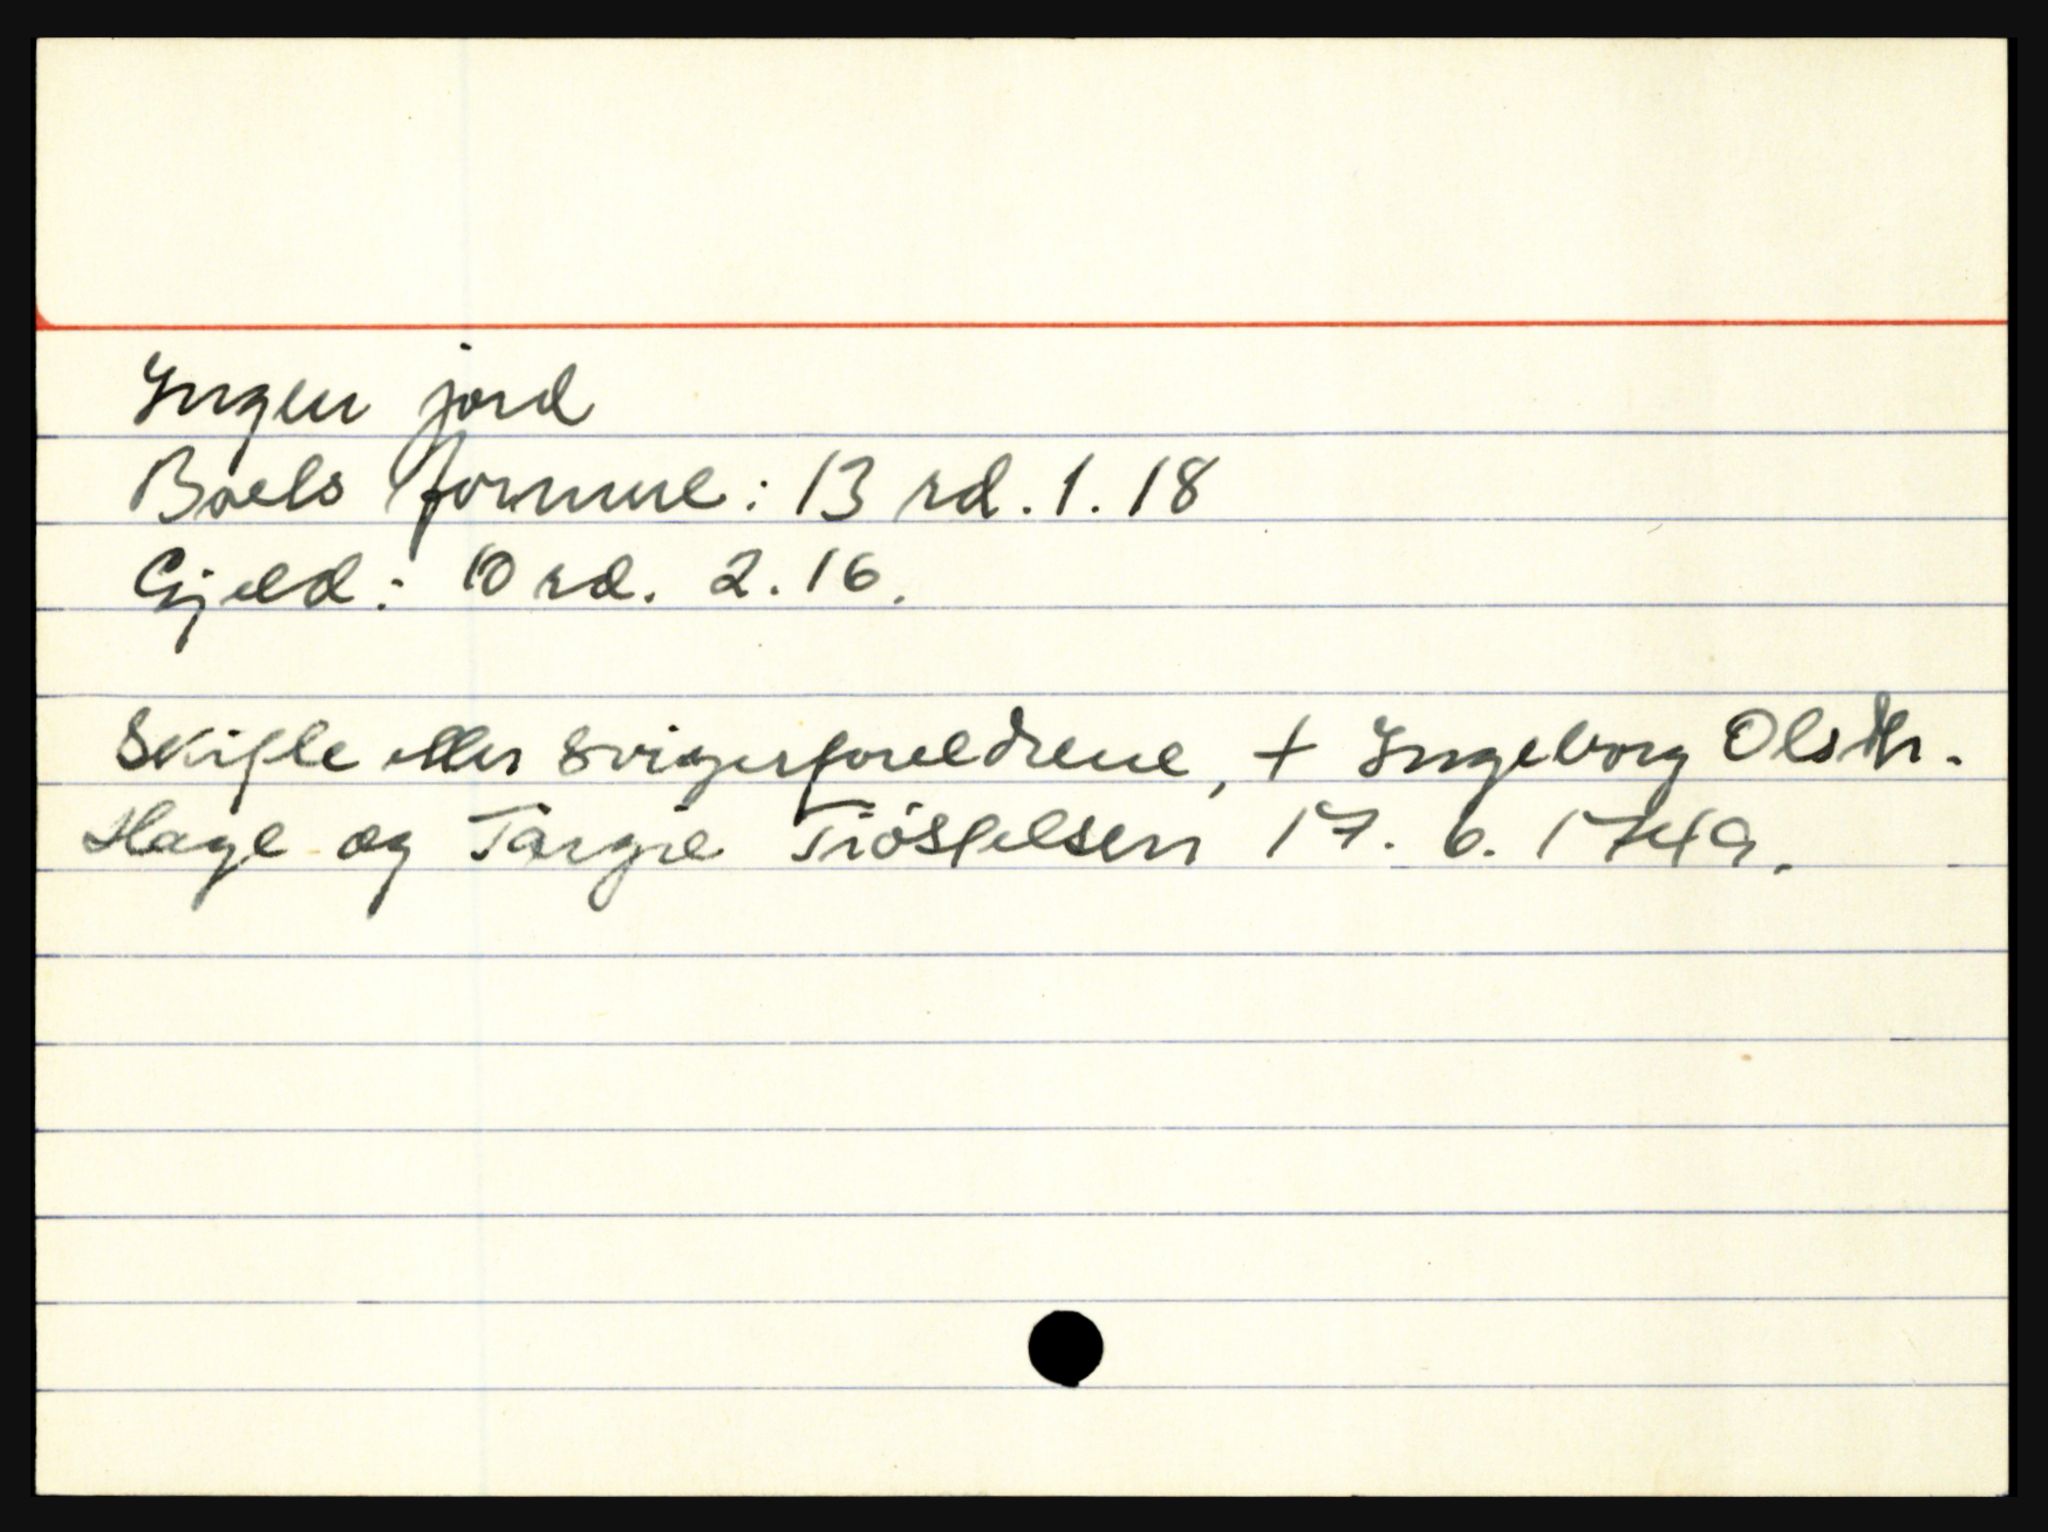 Ingen jord
Boets formue: 13 rd. 1. 18
Gjeld: 10 rd. 2. 16.
Skifte etter svigerforeldrene, + Ingeborg Olsdtr.
Hage og Targie Tiöstelsen 17. 6. 1749.